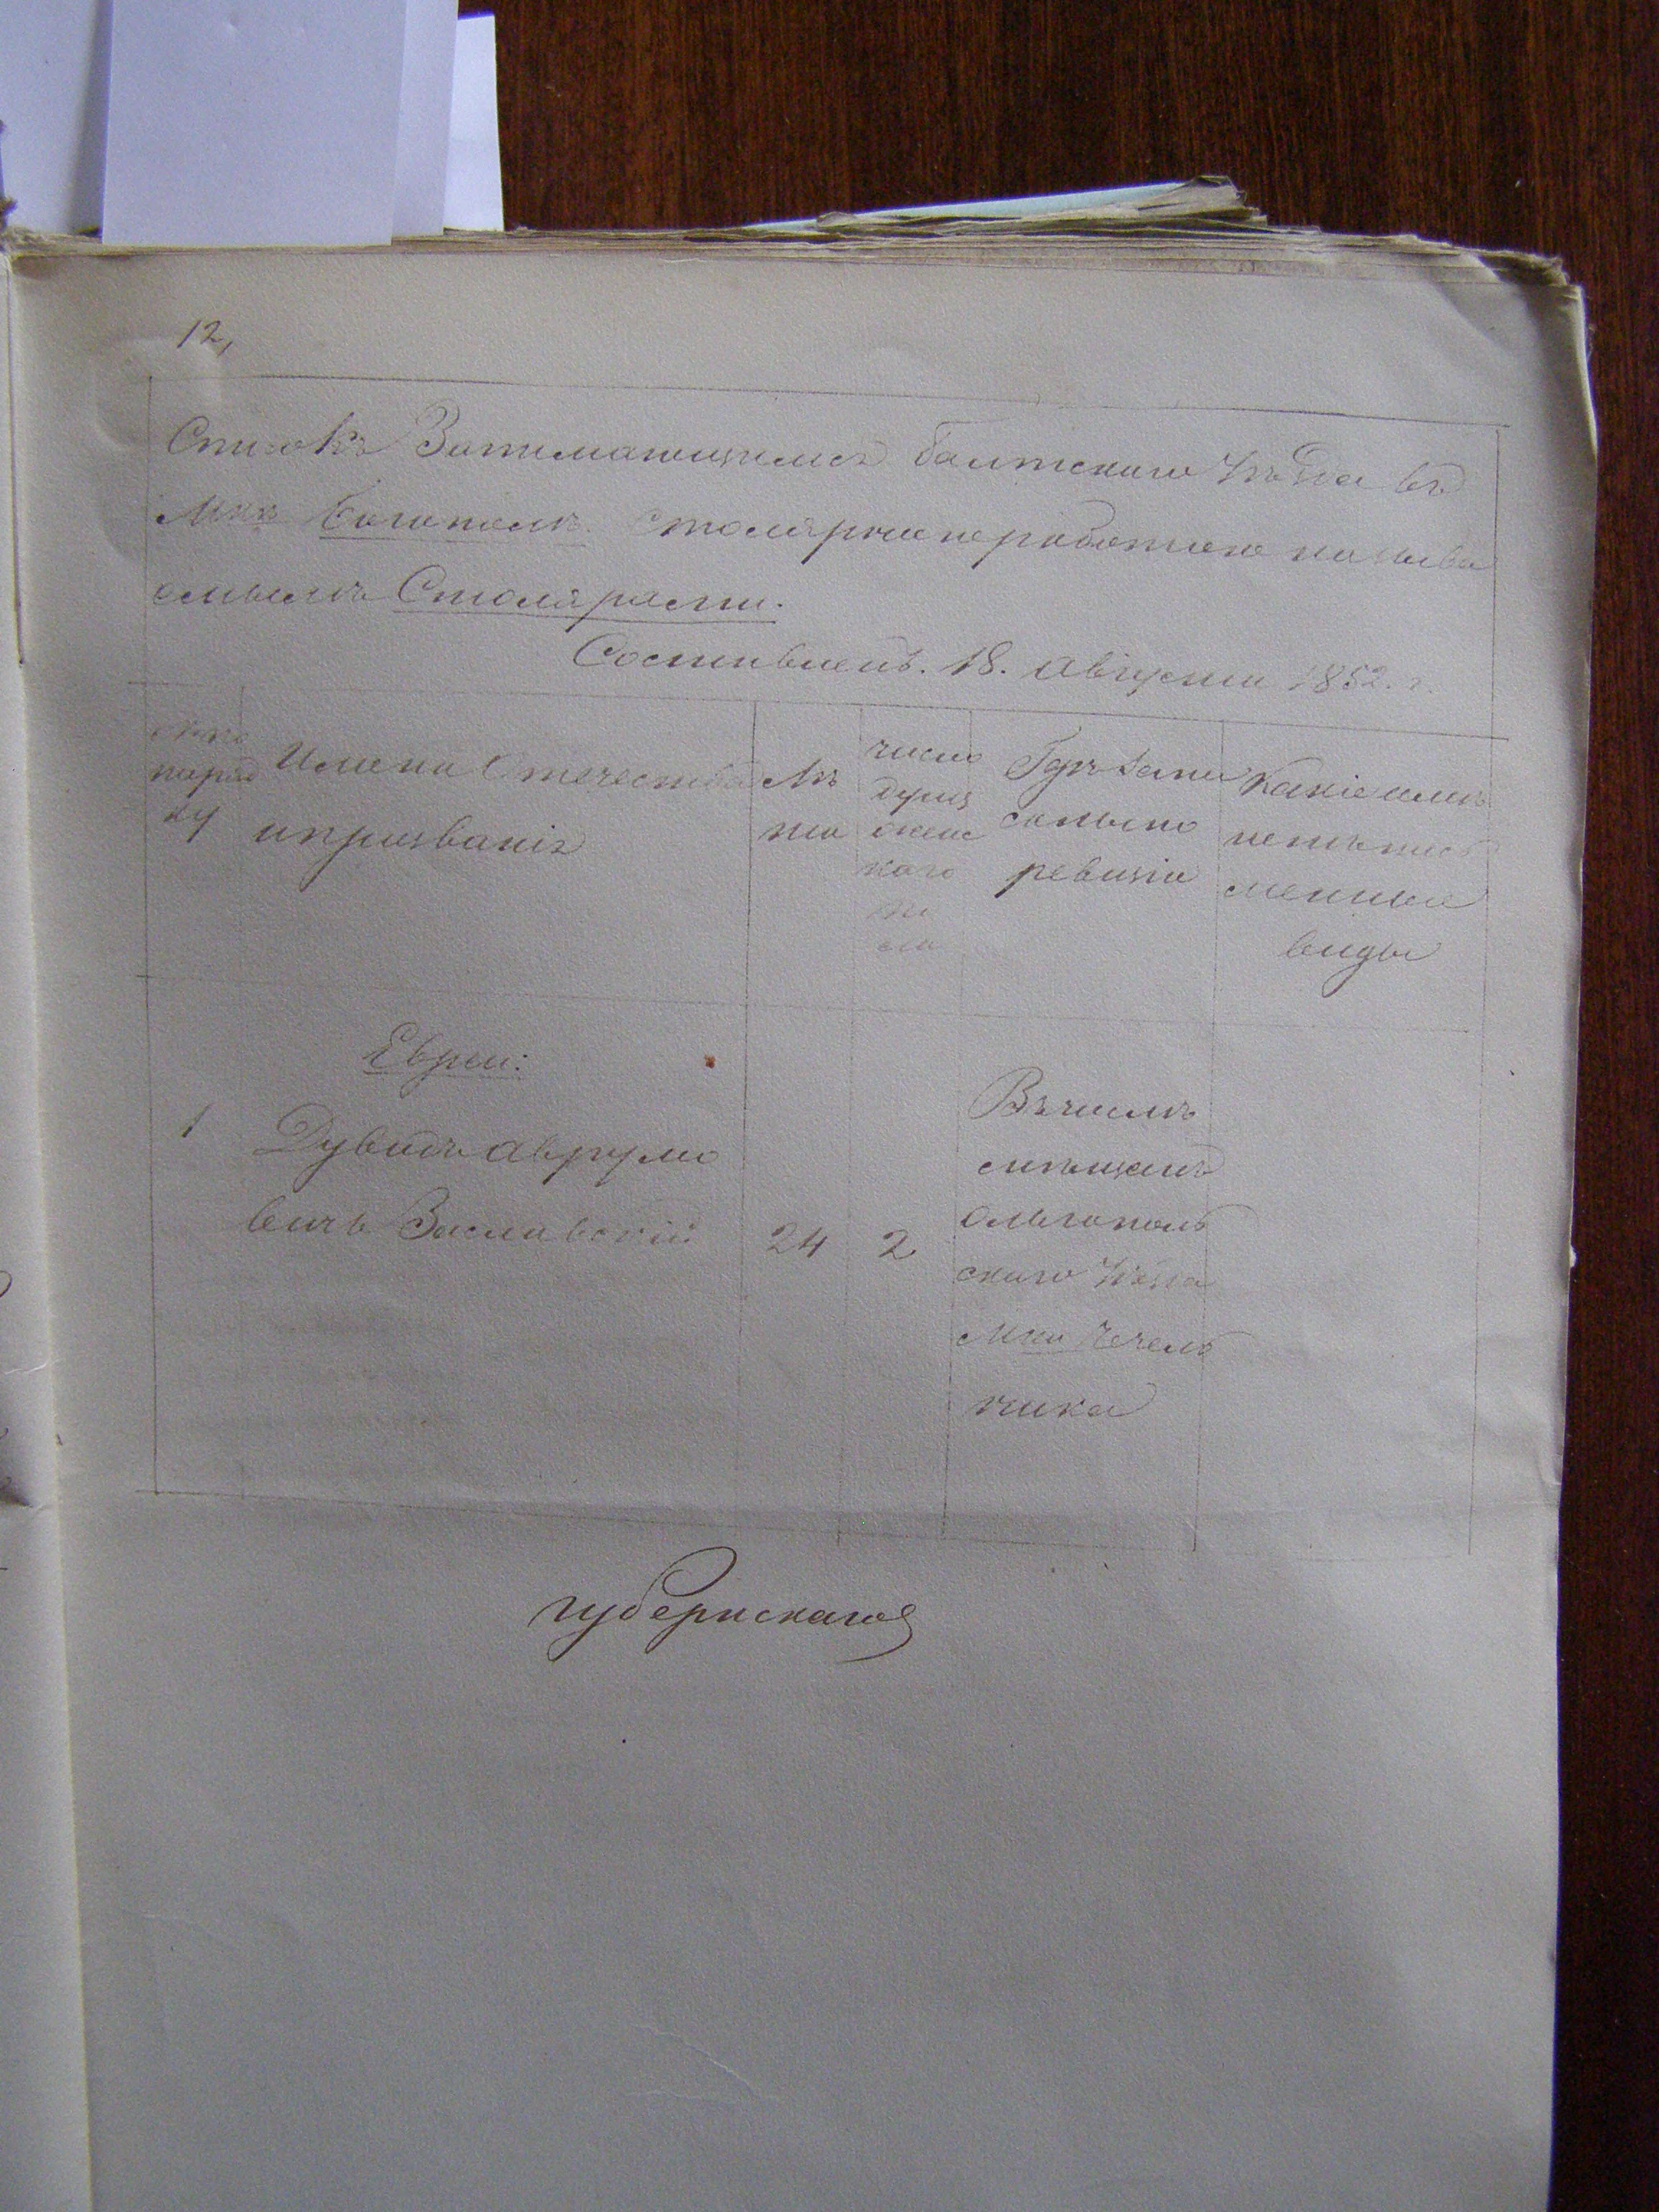 12,
Списокъ Занимающимся Балтскаго Уѣзда въ
Мкѣ Богополѣ Столярною работою называ
емымъ Столярами.
Составленъ. 18. августа 1852. г.
№ по поряд ку
Имена Отечества и прозваніе
Лѣ та
число душъ женс каго по ла
Гдѣ записаны по ревизіи
Какіе имѣ ютъ пись менные виды
Евреи:
1 Дувидъ Аврумо
вичъ Заславскій 24 2
Въ числѣ
мѣщанъ
Ольгополь
скаго Уѣзда
Мка Чечель
ника
губернскаго